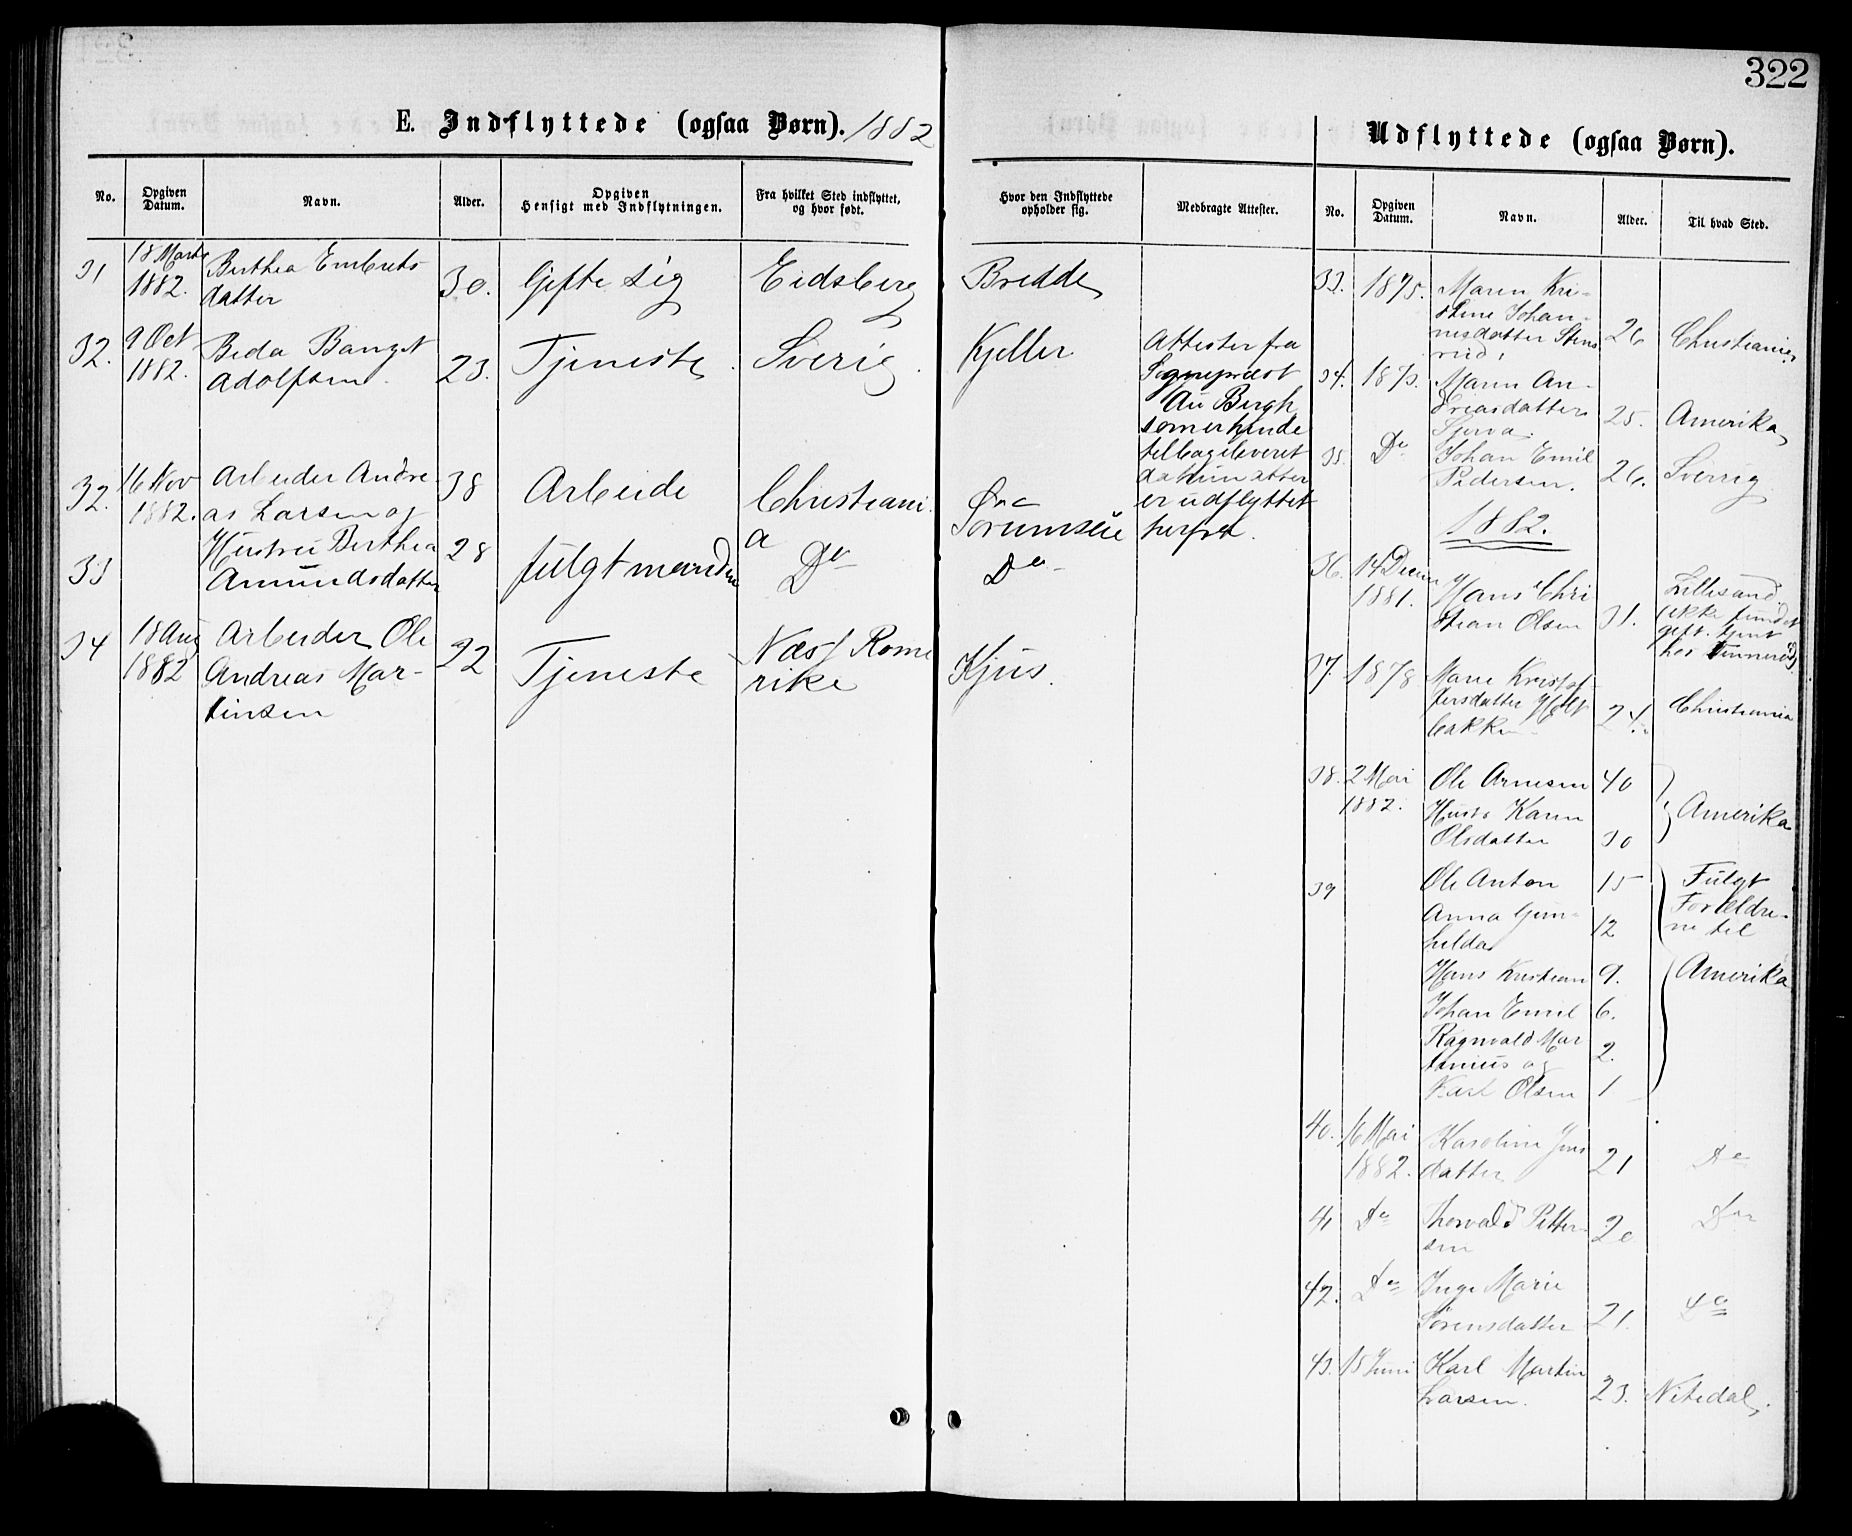 322
E. Indflyttede (ogsaa Børn). 1882
No.
Opgiven
Datum.
Navn.
Alder.
Opgiven
Hensigt med Indflytningen.
Fra hvilket Sted indflyttet,
og hvor født.
Hvor den Indflyttede
opholder sig.
Medbragte Attester.
31
18 Marts
1882.
Berthea Embrets
datter
30.
Gifte sig
Eidsberg
Bredde
32.
9 Oct
1882.
Beda Banget
Adolfsen
23.
Tjeneste
Sverig
Kjeller
Attester fra
Sogneprest
Au Bergh
som er hende
tilbageleveret
da hun atter
er udflyttet
herfra.
32.
16 Nov
1882.
Arbeider Andre
as Larsen og
38
Arbeide
Christiani
a
Sörumseie
33
Hustru Berthea
Amundsdatter
28
fulgt manden
Do
Do
34
18 Aug
1882
Arbeider Ole
Andreas Mar-
tinsen
22
Tjeneste
Næs Rome
rike
Kjus.
Udflyttede (ogsaa Børn).
No.
Opgiven
Datum.
Navn.
Alder.
Til hvad Sted.
33.
1875.
Maren Kri-
stine Johan-
nesdatter Stens
rud,
26
Christiania
34.
187
Maren An-
dreasdatter
25.
Amerika
35.
Do
Johan Emil
Pedersen.
26.
Sverrig
1882.
36.
14 Decem
1881.
Hans Chri
stian Olsen
31.
Lillesand
(ikke fundet
gift. tjent
hos
37.
1878
Marie Kristof
fersdatter Holt
bakken
24.
Christiania
38.
2 Mai
1882.
Ole Arnesen
40
Hustr Karen
Olsdatter
30
Amerika
39
Ole Anton
15
Anna Gun-
hilda
12
Hans Kristian
9.
Johan Emil
6.
Ragnvald Mar
tinius og
2.
Karl Olsen
1
Fulgt
Forældre-
ne til
Amerika
40.
16 Mai
1882.
Karoline Jens
datter
21
Do
41
Do
Thorvald Petter-
sen
20
Do
42.
Do
Inge Marie
Sörensdatter
21.
Do
43.
15 Juni
Karl Martin
Larsen.
23.
Nitedal.